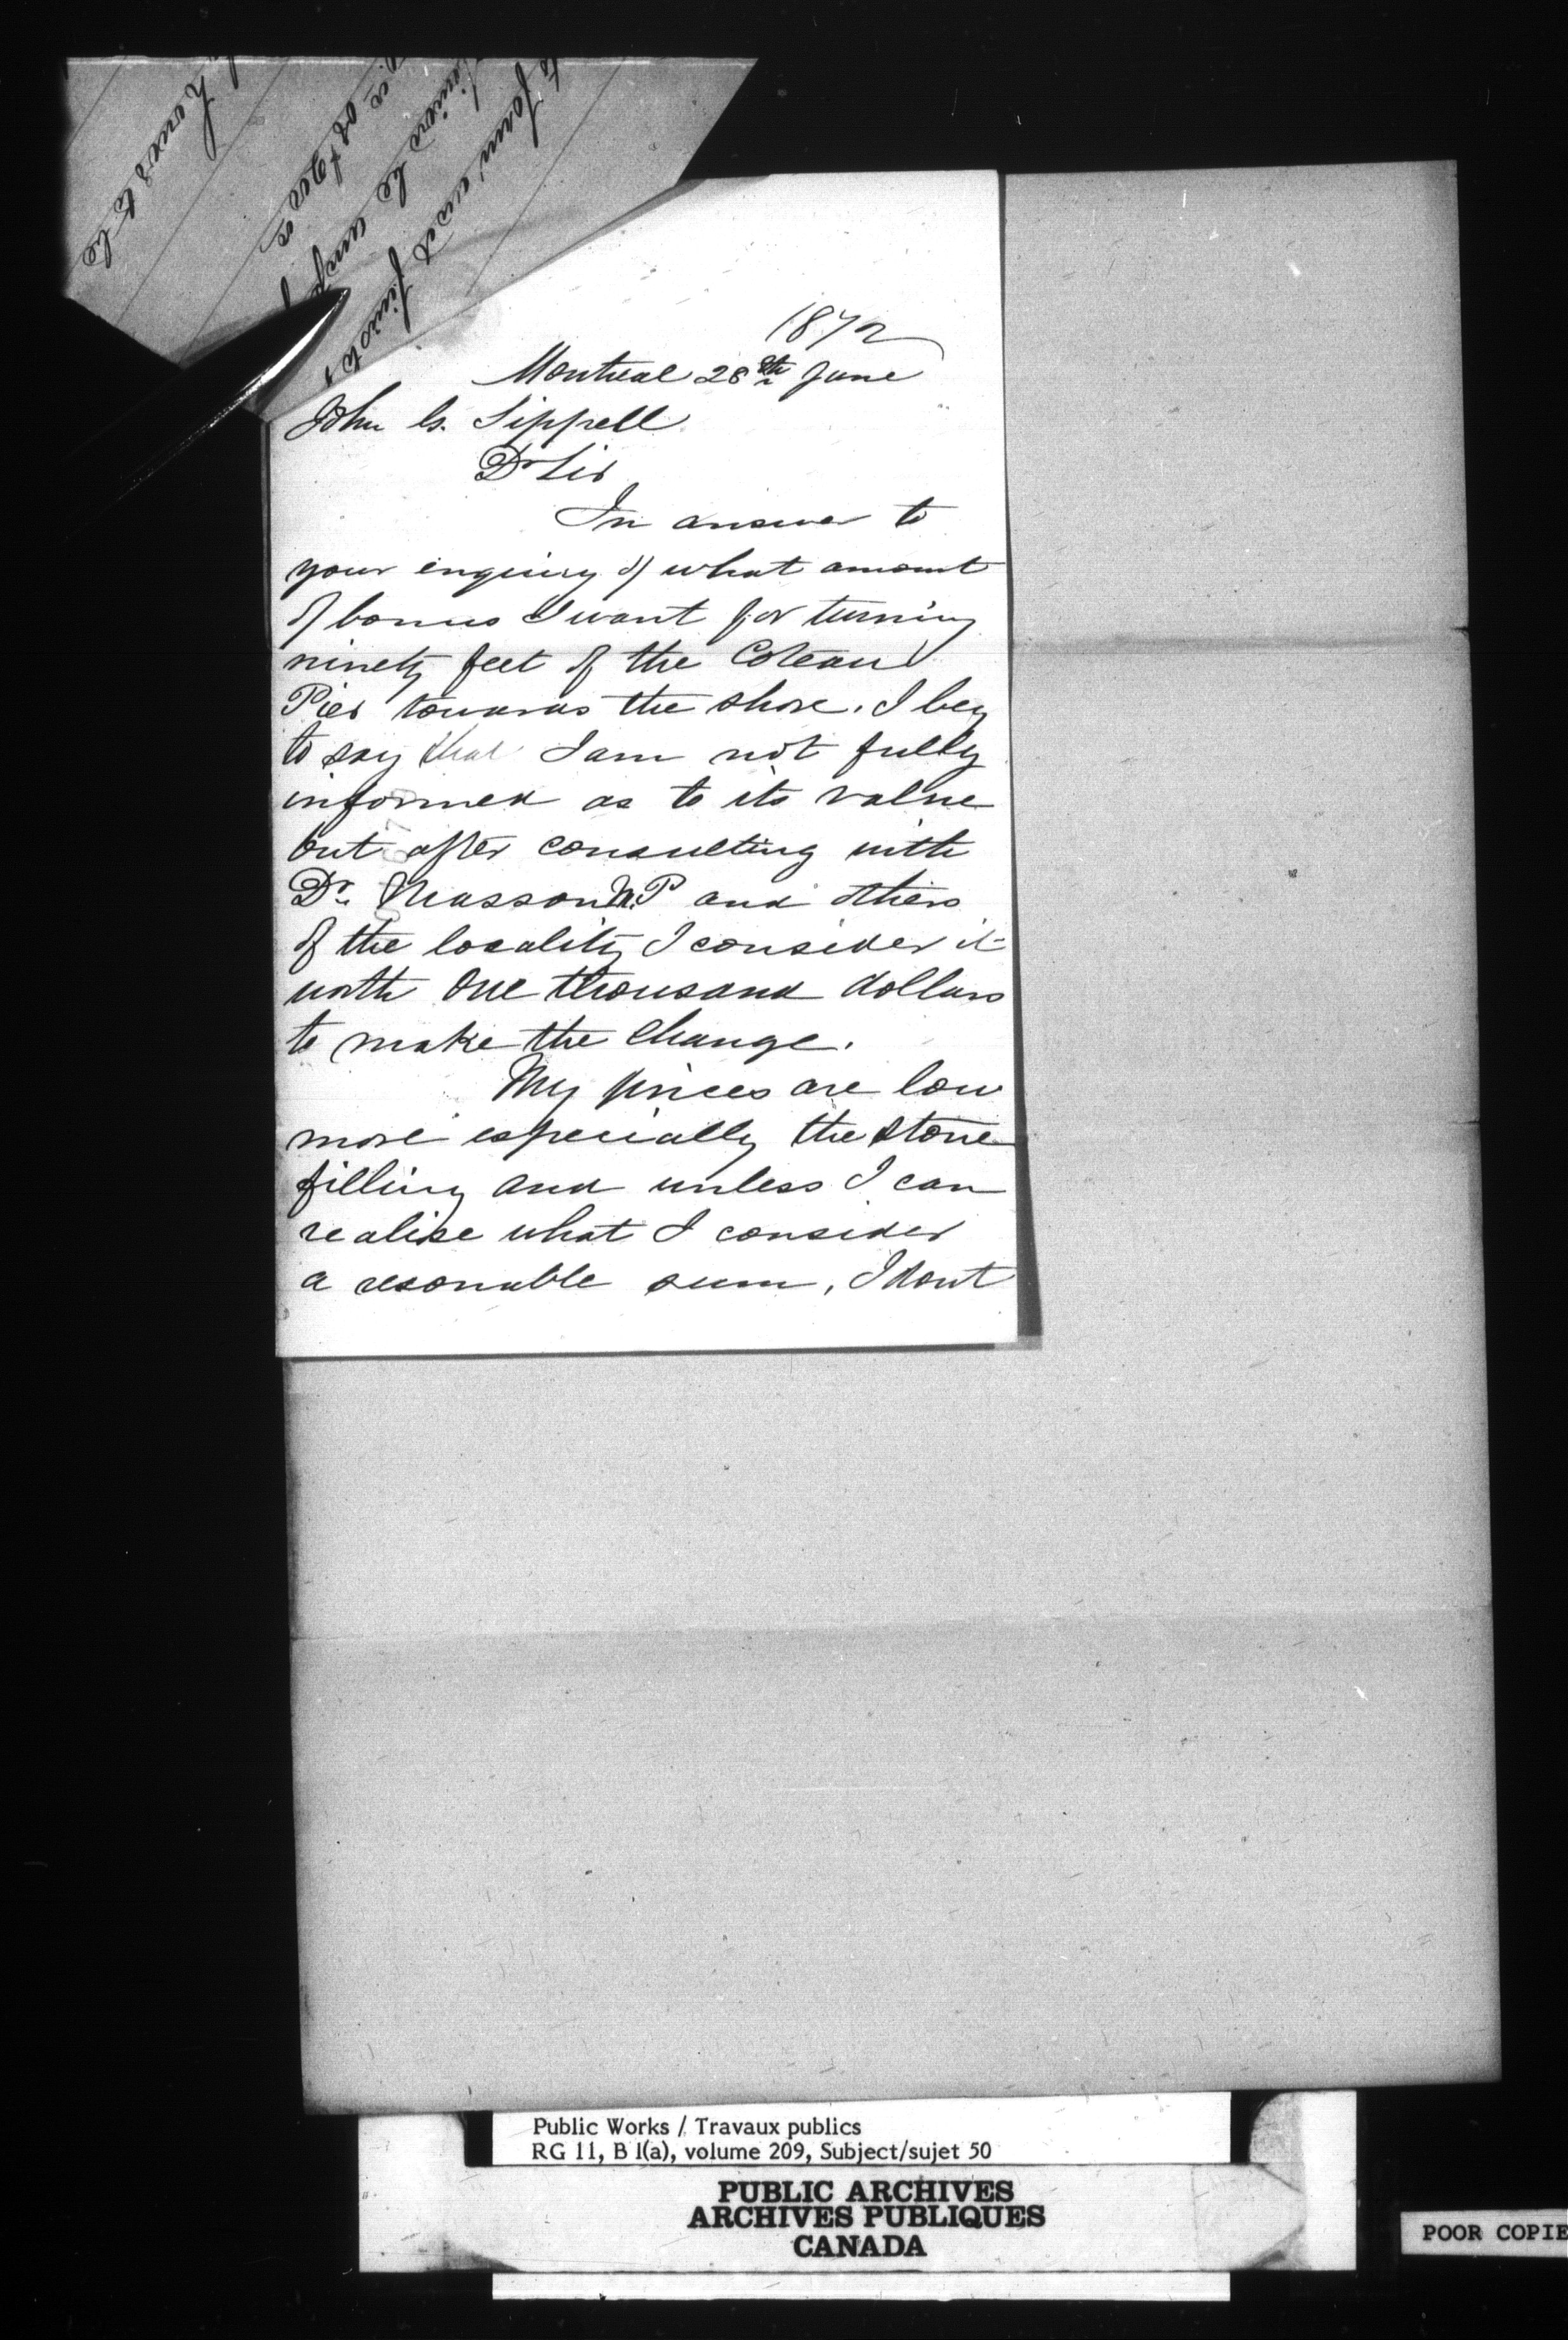 hours to be
1872
Montreal 28th June
John G. Sippell
Dr Sir
In answer to
your enquiry of what amount
of bonus I want for turning
ninety feet of the Coteau
Pier towards the shore. I beg
to say that I am not fully
informed as to its value
but after consulting with
Dr. Masson M.P and others
of the locality I consider it
worth One thousand dollars
to make the change.
My prices are low
more especially the stone
filling and unless I can
realise what I consider
a resonable sum, I dont
Public Works / Travaux publics
RG 11, B 1(a), volume 209, Subject/sujet 50
PUBLIC ARCHIVES
ARCHIVES PUBLIQUES
CANADA
POOR COPIE